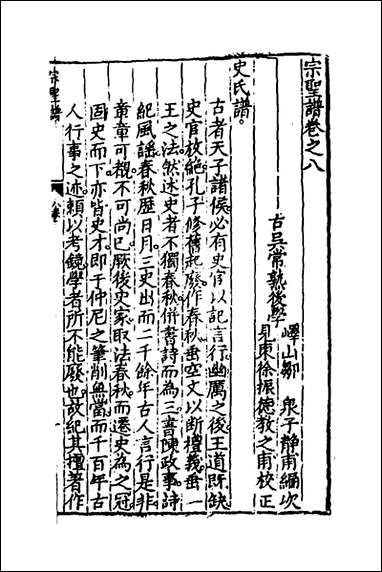 宗聖譜卷之八
古吳常熟後學
嶧山鄒 泉子靜甫編次
見東徐振德敎之甫校正
史氏譜
古者天子諸侯必有史官以記言行幽厲之後王道旣缺
史官放絶孔子修舊起廢作春秋垂空文以斷禮義垂一
王之法然述史者不獨春秋併書詩而為三書陳政事詩
紀風謡春秋歷日月三史出而二千餘年古人言行是非
章章可覩不可尚已厥後史家取法春秋而遷史為之冠
固史而下亦皆史才即于仲尼之筆削無當而千百年古
人行事之迹賴以考鏡學者所不能廢也故紀其擅著作
宗聖譜